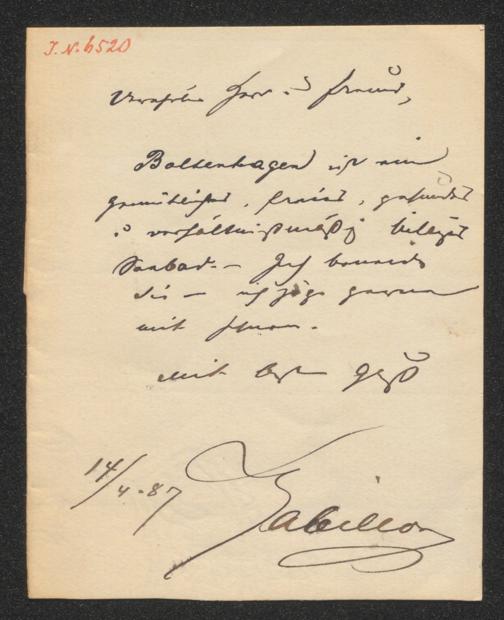 J.N. 6520
Verehrter Herr u. Freund,
Boltenhagen ist ein
gemütliches, freies, gesundes
u verhältnißmäßig billiges
Seebad. – Ich beneide
Sie – ich zöge gerne
mit Ihnen.
Mit best Gruß
14/4. 87
Gabillon